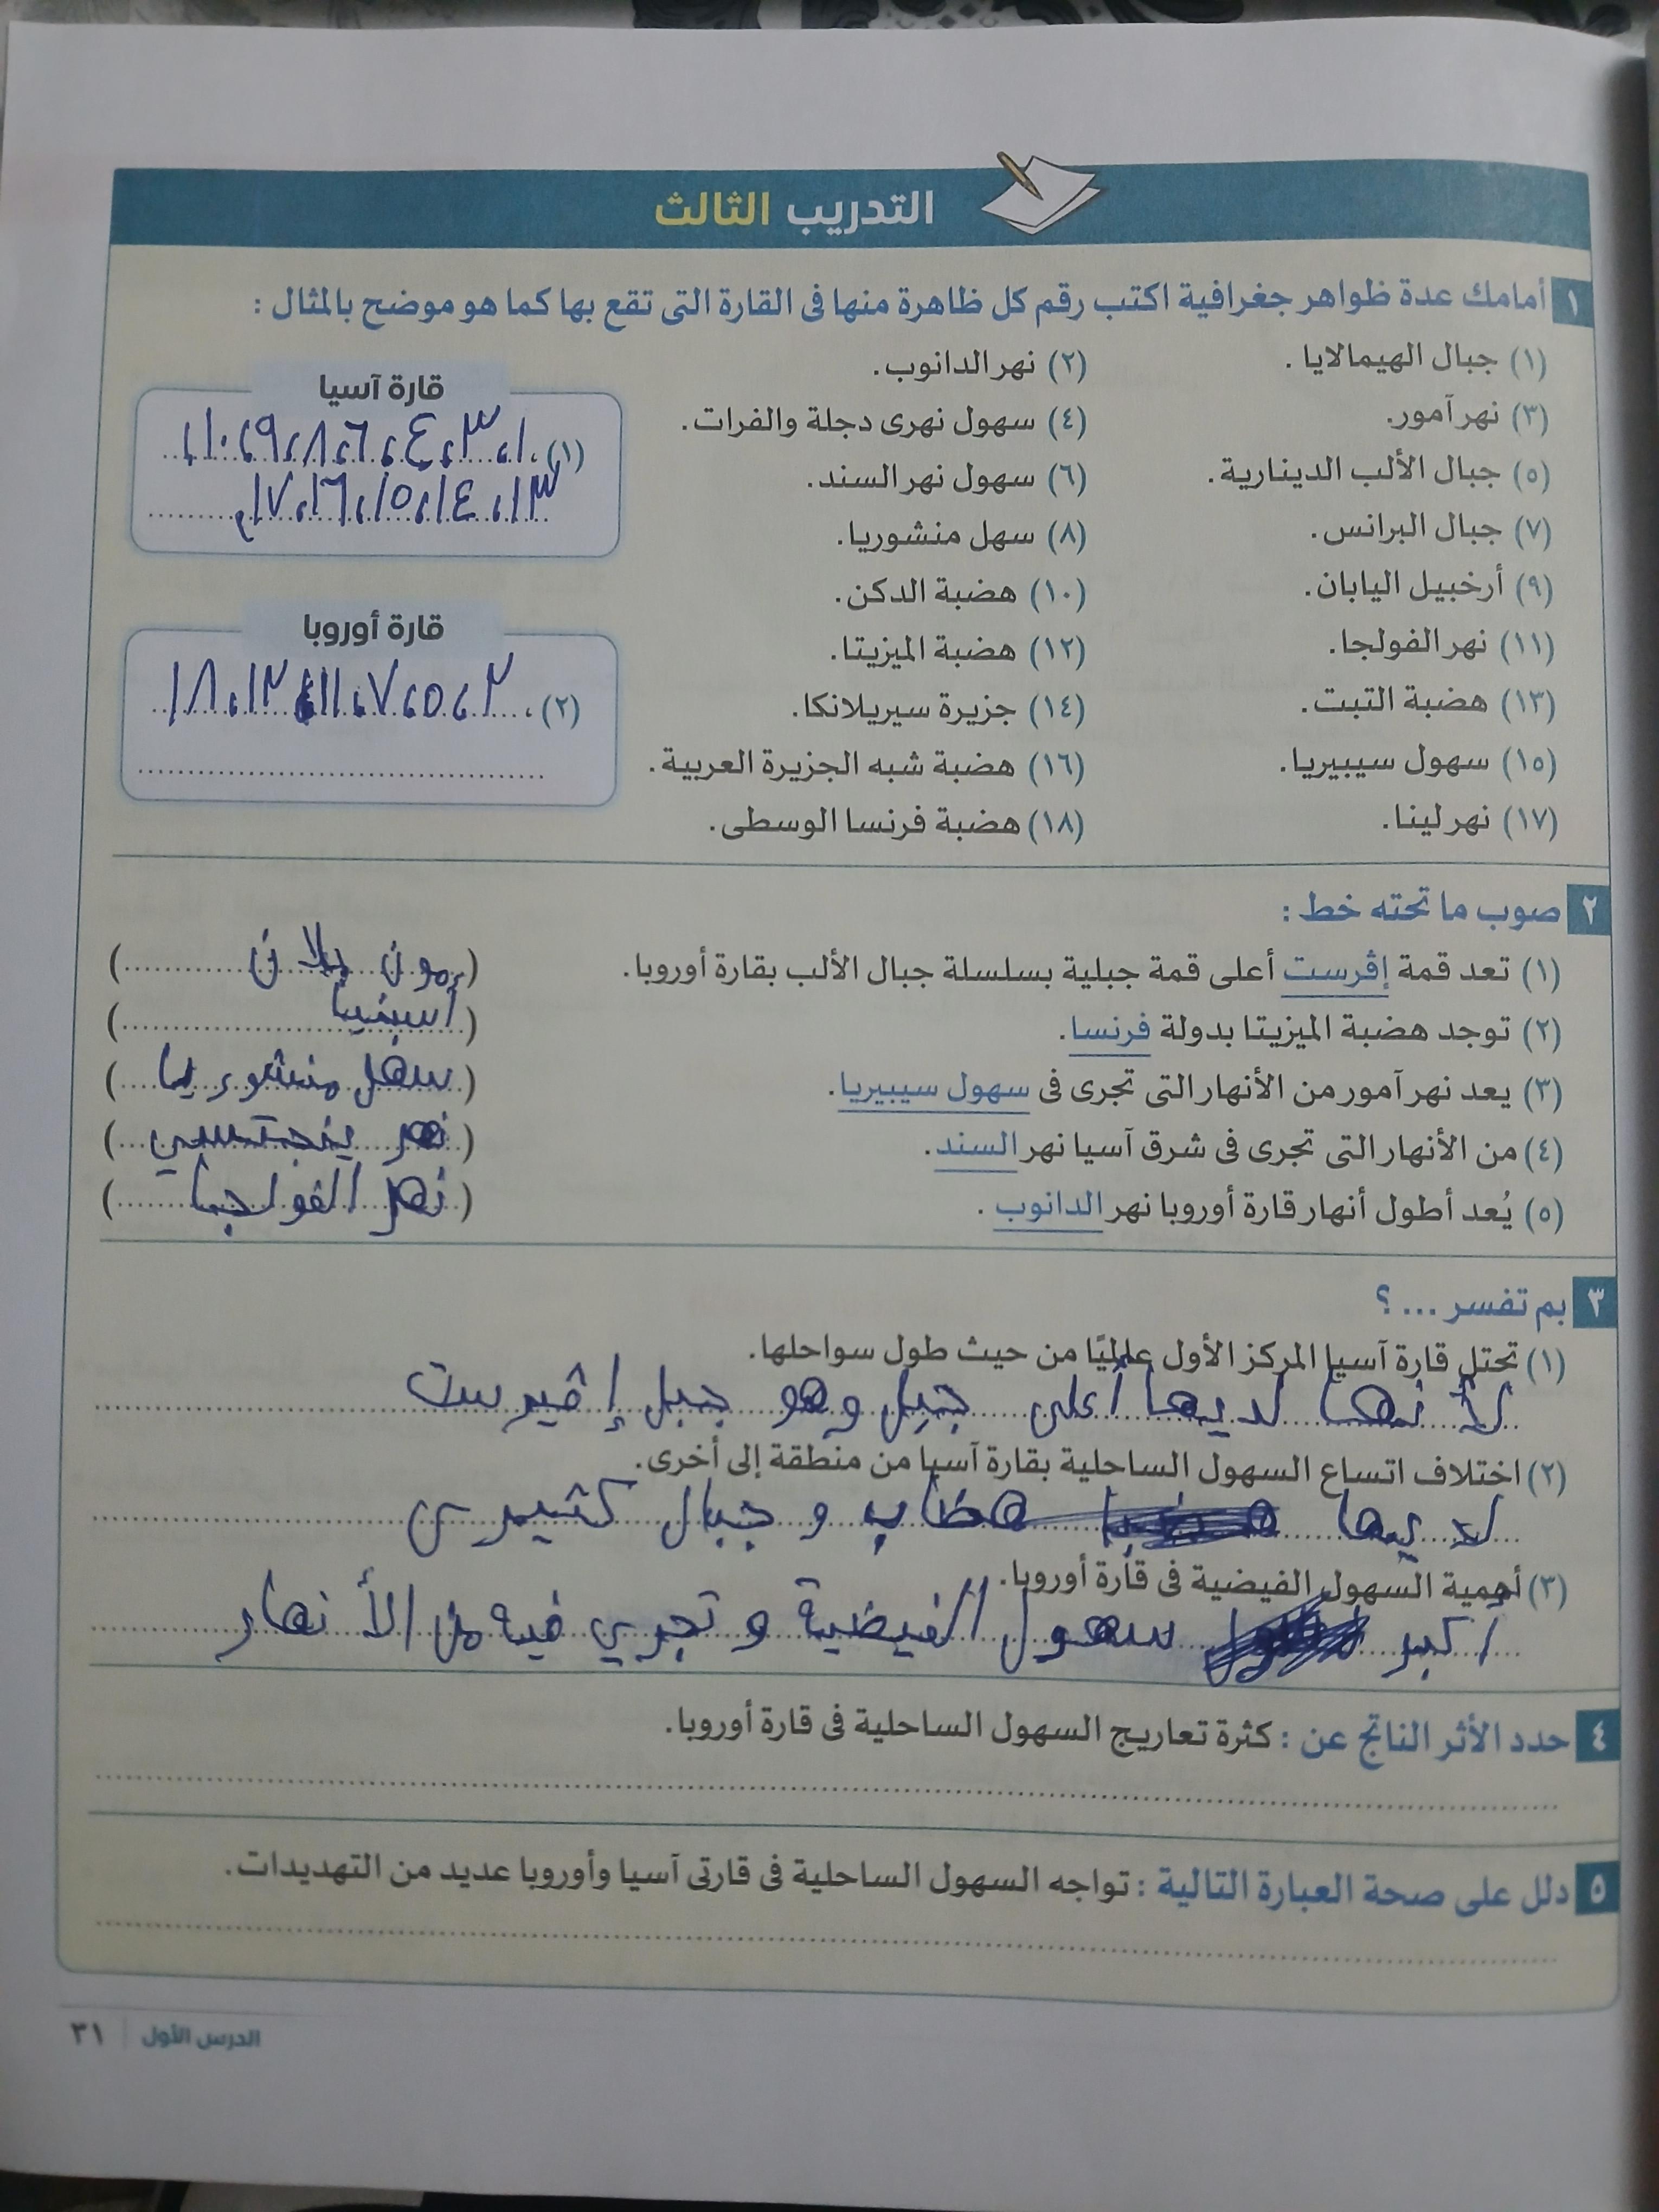 التدريب الثالث
١ أمامك عدة ظواهر جغرافية اكتب رقم كل ظاهرة منها فى القارة التى تقع بها كما هو موضح بالمثال :
(١) جبال الهيمالايا . (٢) نهر الدانوب.
(٣) نهر آمور. (٤) سهول نهرى دجلة والفرات.
(٥) جبال الألب الدينارية. (٦) سهول نهر السند.
(٧) جبال البرانس. (٨) سهل منشوريا.
(٩) أرخبيل اليابان. (١٠) هضبة الدكن.
(١١) نهر الفولجا. (١٢) هضبة الميزيتا.
(١٣) هضبة التبت. (١٤) جزيرة سيريلانكا.
(١٥) سهول سيبيريا. (١٦) هضبة شبه الجزيرة العربية.
(١٧) نهر لينا. (١٨) هضبة فرنسا الوسطى.
قارة آسيا
(١)، ١، ٣، ٤، ٦، ٨، ٩، ١٠،
١٣، ١٤، ١٥، ١٦، ١٧،
قارة أوروبا
(٢)، ٢، ٥، ٧، ١١، ١٢، ١٨
٢ صوب ما تحته خط :
(١) تعد قمة إڤرست أعلى قمة جبلية بسلسلة جبال الألب بقارة أوروبا. (مون بلان)
(٢) توجد هضبة الميزيتا بدولة فرنسا. (أسبنيا)
(٣) يعد نهر آمور من الأنهار التى تجرى فى سهول سيبيريا. (سهل منشوريا)
(٤) من الأنهار التى تجرى فى شرق آسيا نهر السند. (نهر ينجتسي)
(٥) يُعد أطول أنهار قارة أوروبا نهر الدانوب . (نهر الفولجا)
٣ بم تفسر ... ؟
(١) تحتل قارة آسيا المركز الأول عالميًا من حيث طول سواحلها.
لأنها لديها أعلى جبل وهو جبل إڤيرست
(٢) اختلاف اتساع السهول الساحلية بقارة آسيا من منطقة إلى أخرى.
لديها هظاب و جبال كثير
(٣) أهمية السهول الفيضية فى قارة أوروبا.
أكبر سهول الفيضية و تجري فيه من الأنهار
٤ حدد الأثر الناتج عن : كثرة تعاريج السهول الساحلية فى قارة أوروبا.
٥ دلل على صحة العبارة التالية : تواجه السهول الساحلية فى قارتى آسيا وأوروبا عديد من التهديدات.
الدرس الأول | ٣١